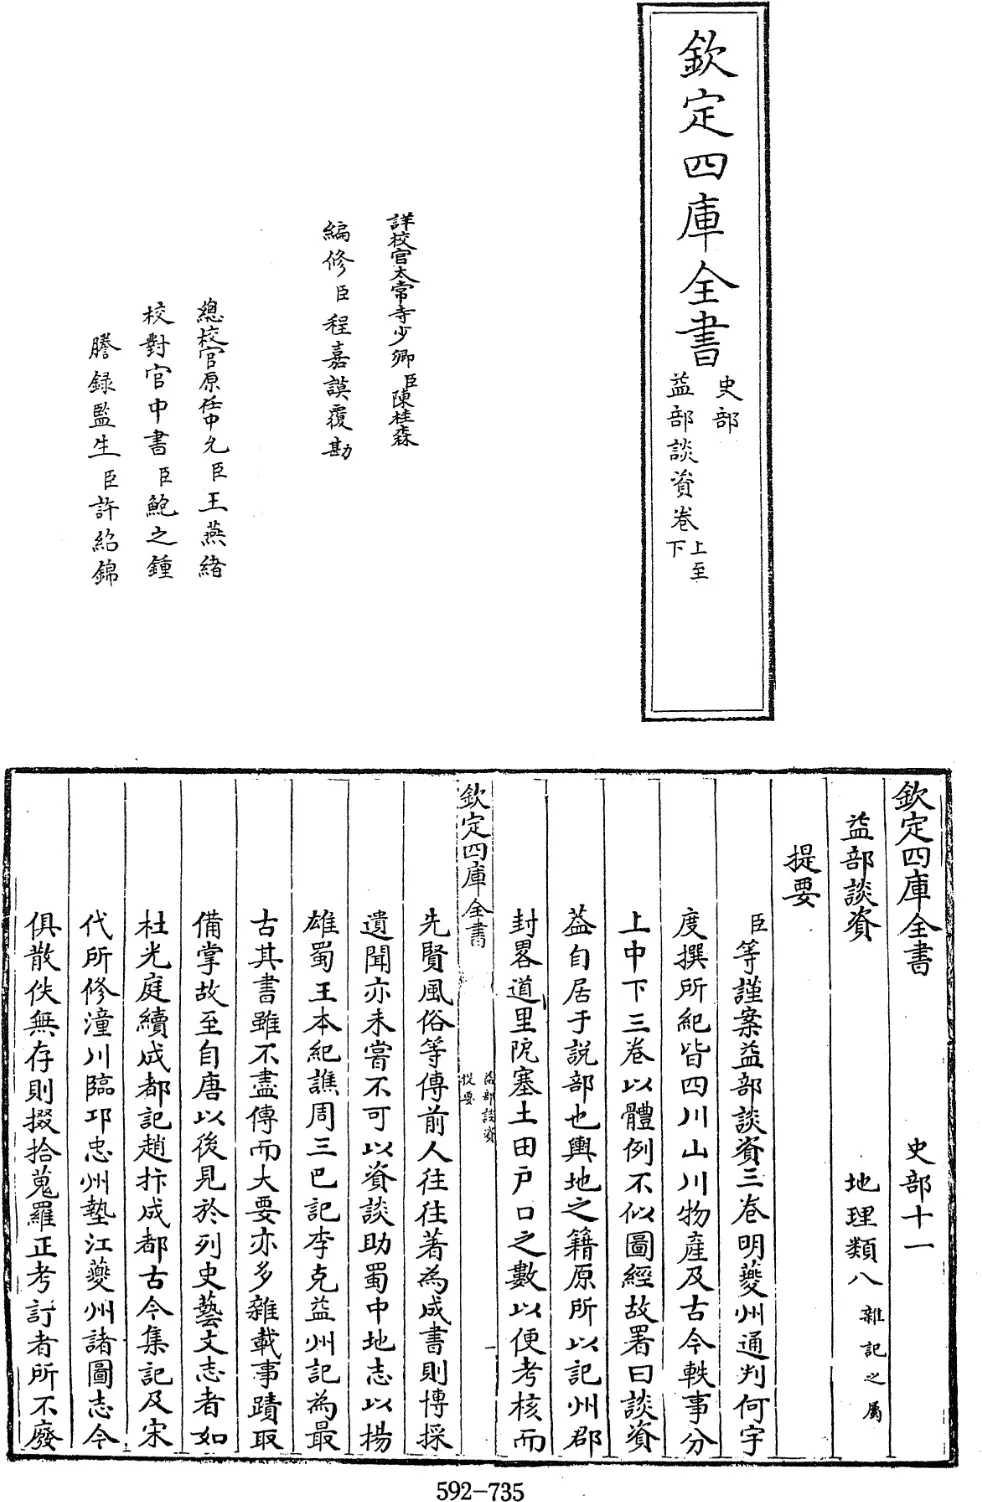 欽定四庫全書
史部
益部談資卷上至下
詳校官太常寺少卿臣陳桂森
編修臣程嘉謨覆勘
總校官原任中允臣王燕緒
校對官中書臣鮑之鍾
謄録監生臣許紹錦
欽定四庫全書 史部十一
益部談資 地理類八雜記之屬
提要
臣等謹案益部談資三卷明夔州通判何宇
度撰所紀皆四川山川物產及古今軼事分
上中下三卷以體例不似圖經故署曰談資
葢自居于説部也輿地之籍原所以記州郡
封畧道里阨塞土田戸口之數以便考核而
欽定四庫全書
益部談資
提要
一
先賢風俗等傳前人往往著為成書則博採
遺聞亦未嘗不可以資談助蜀中地志以揚
雄蜀王本紀譙周三巴記李克益州記為最
古其書雖不盡傳而大要亦多雜載事蹟取
備掌故至自唐以後見於列史藝文志者如
杜光庭續成都記趙抃成都古今集記及宋
代所修潼川臨邛忠州墊江夔州諸圖志今
俱散佚無存則掇拾蒐羅正考訂者所不廢
592-735